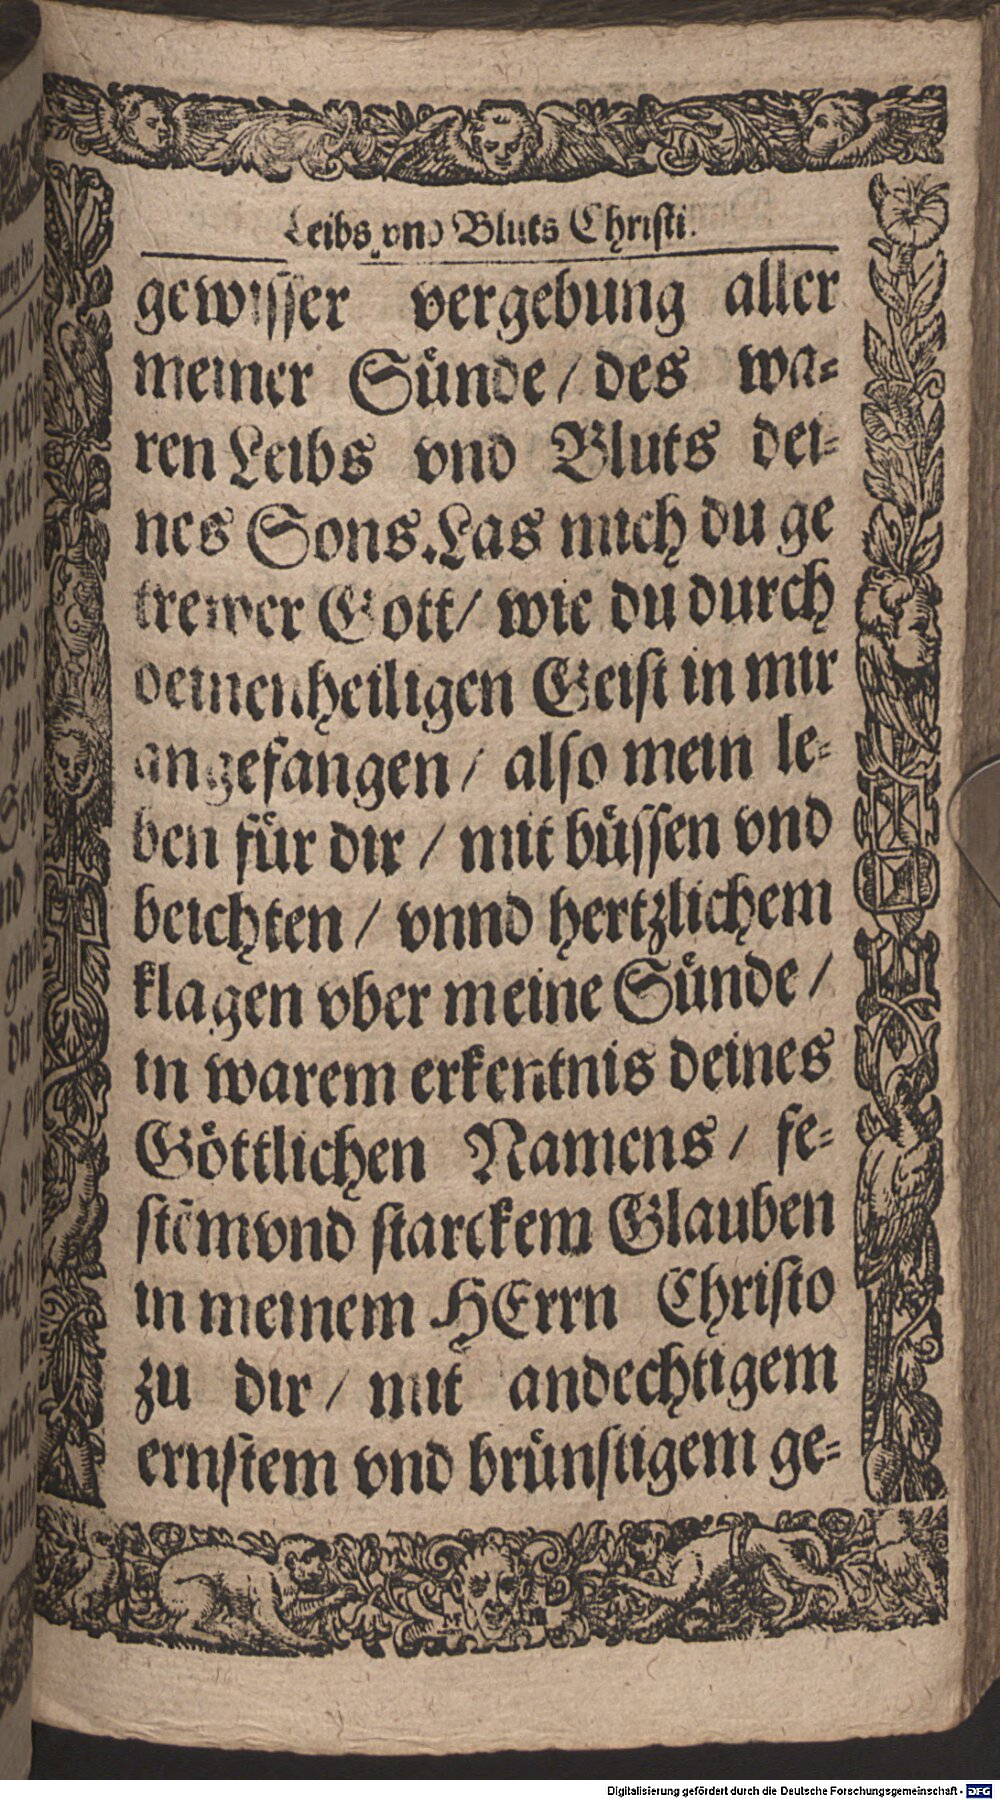 Leibs vnd Bluts Christi.
gewisser vergebung aller
meiner Sünde / des wa-
ren Leibs vnd Bluts dei-
nes Sons. Las mich du ge
trewer Gott / wie du durch
deinen heiligen Geist in mir
angefangen / also mein le-
ben für dir / mit büssen vnd
beichten / vnnd hertzlichem
klagen vber meine Sünde /
in warem erkentnis deines
Göttlichen Namens / fe-
stem vnd starckem Glauben
in meinem HErrn Christo
zu dir / mit andechtigem
ernstem vnd brünstigem ge-
Digitalisierung gefördert durch die Deutsche Forschungsgemeinschaft - DFG